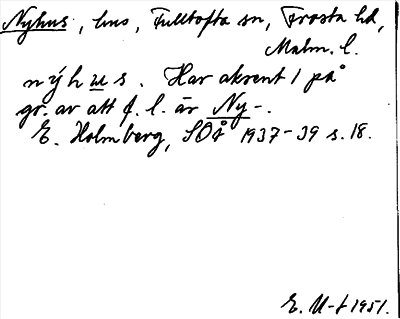 Nyhus, hus, Fulltofta sn, Frosta hd,
Malm. l.
nýhus. Har akcent 1 på
gr. av att f. l. är Ny-.
E. Holmberg, SOÅ 1937-39 s. 18.
E. U-f 1951.